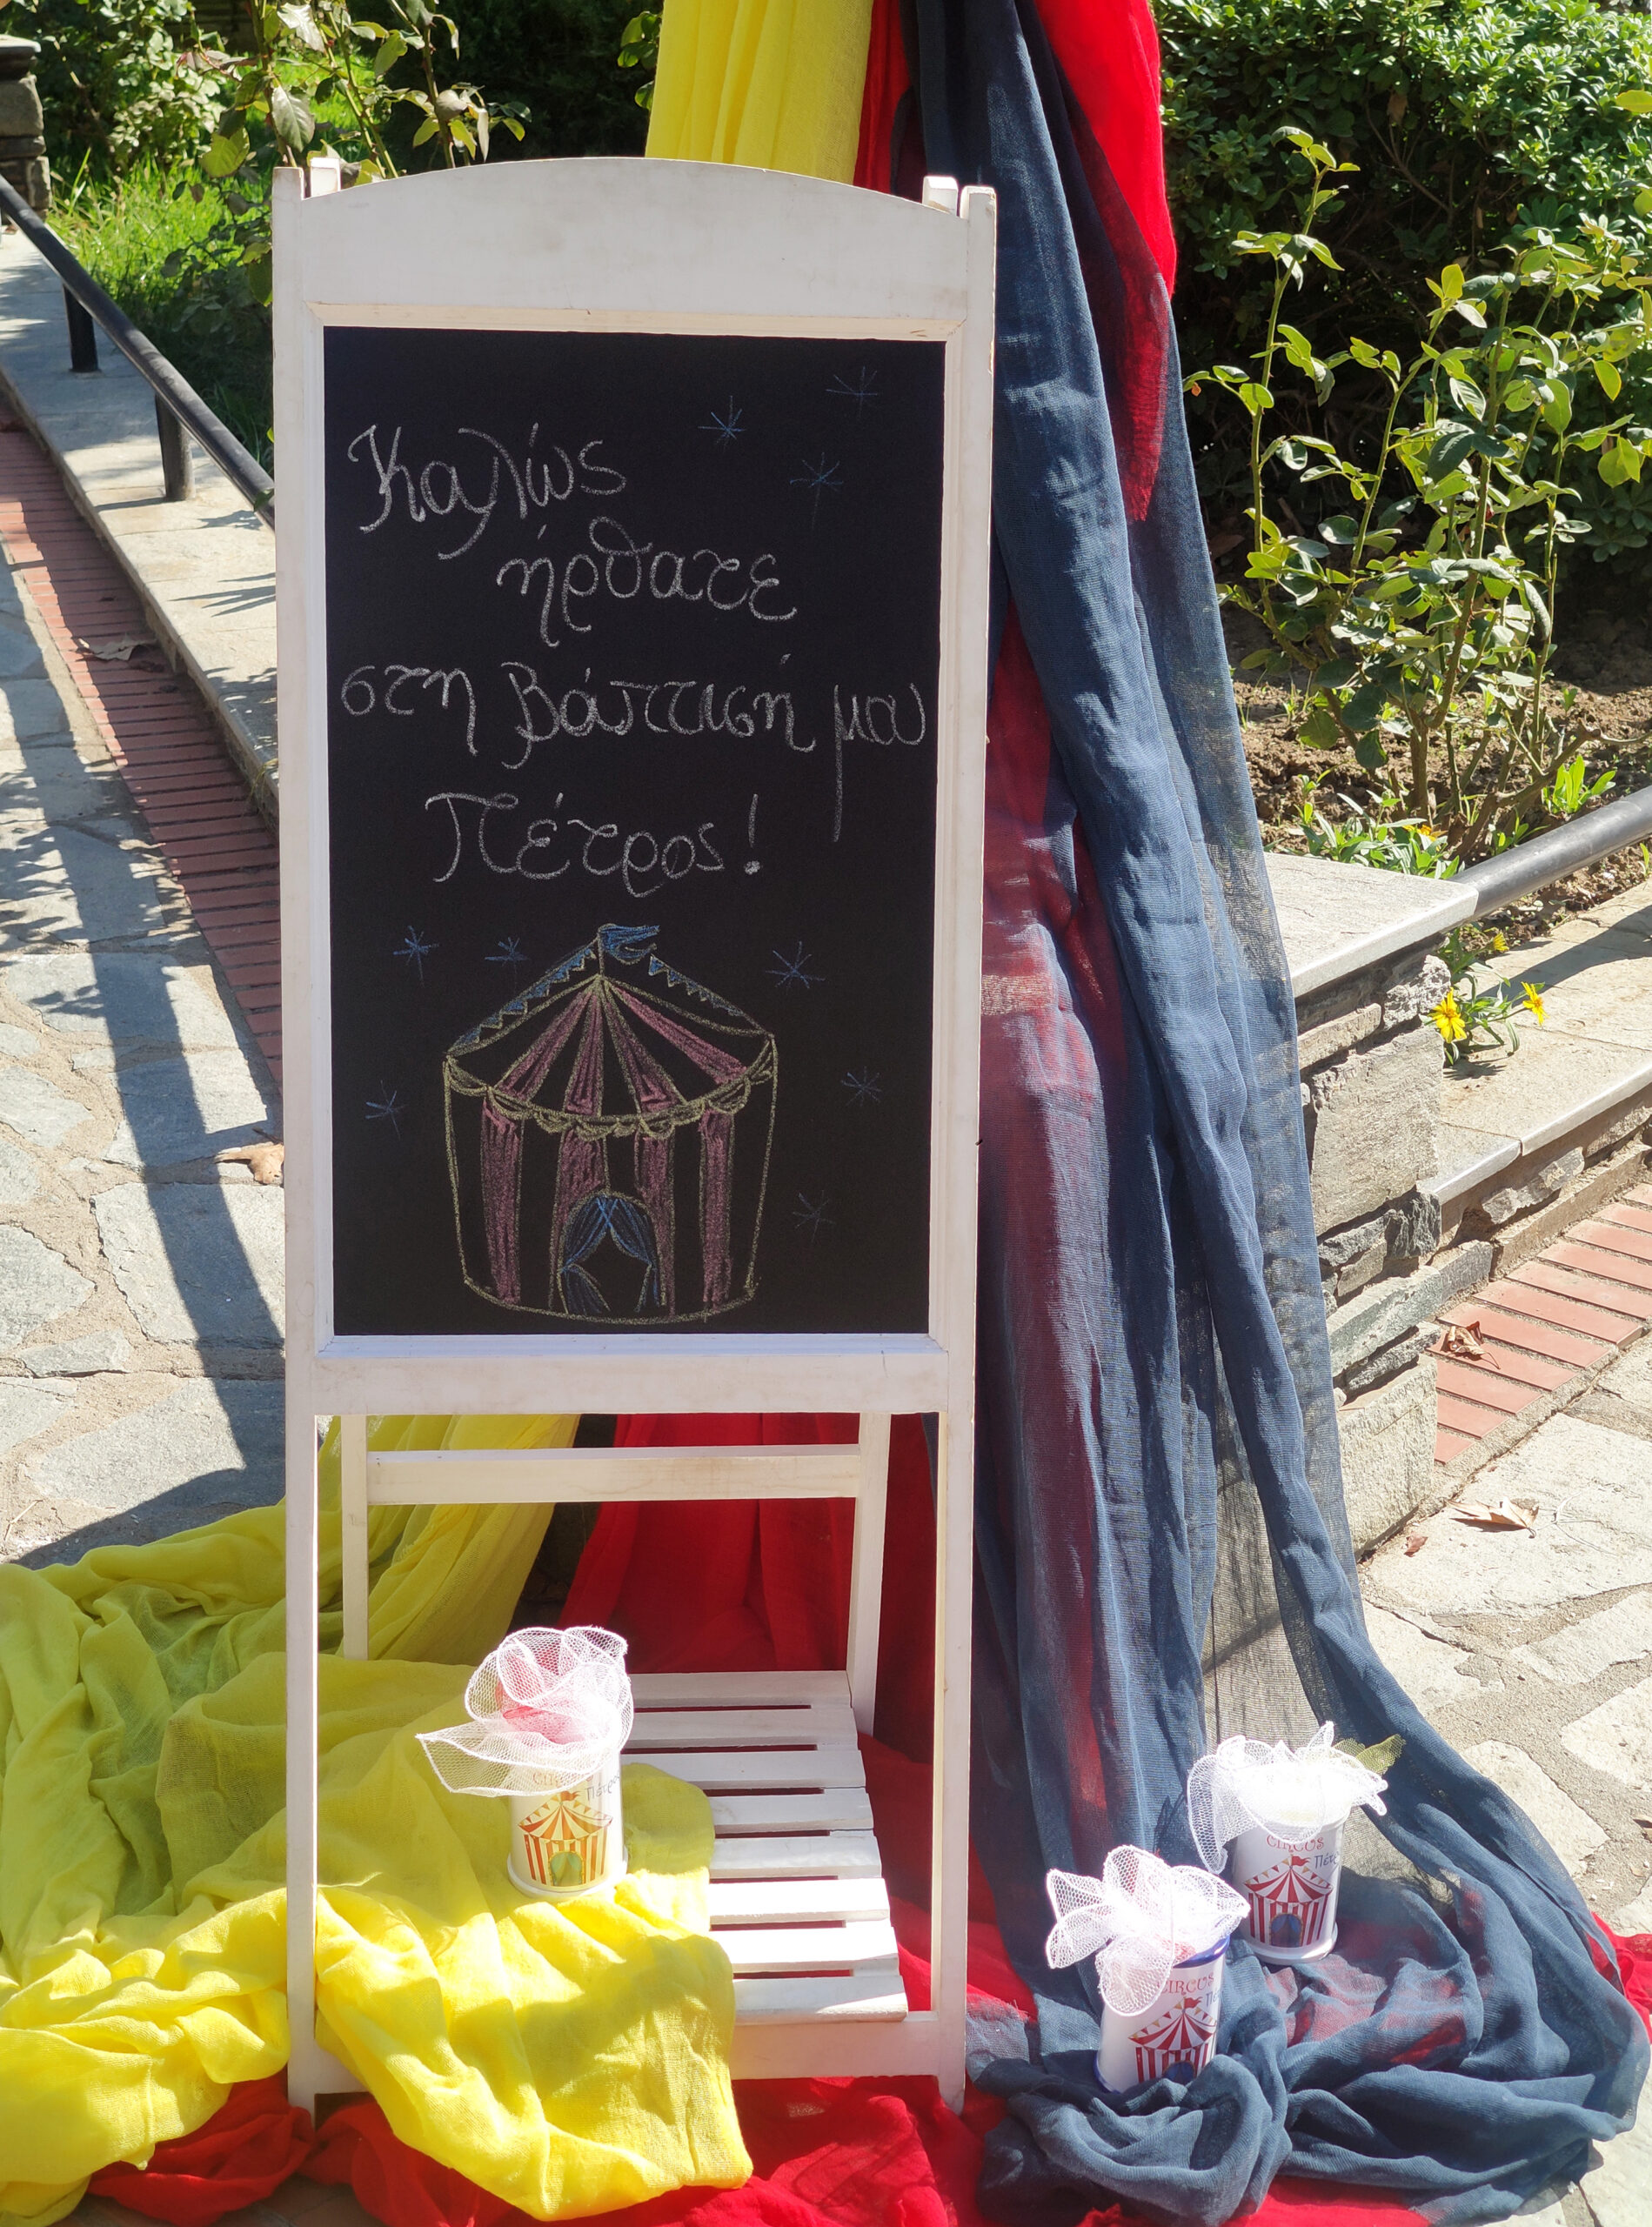 Καλώς
ήρθατε
στη βάπτισή μου
Πέτρος!
CIRCUS
CIRCUS
Πέτρ
CIRCUS